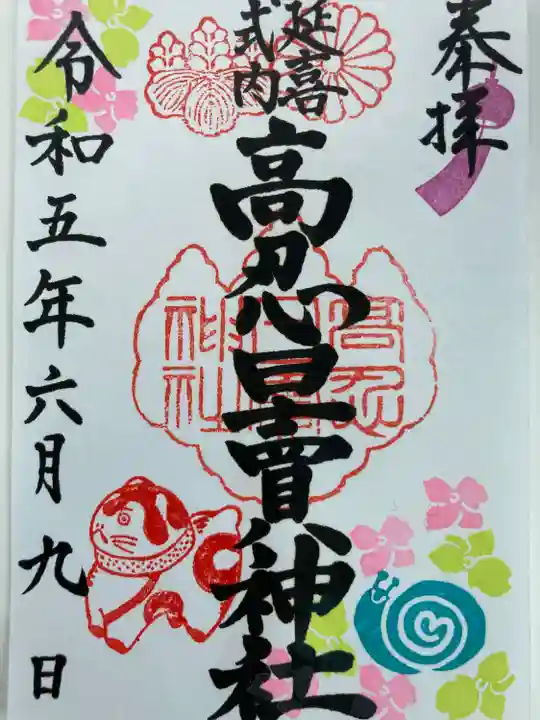 奉拝
延喜
式内
高忍日賣神社
令和五年六月九日
高忍
日賣
神社